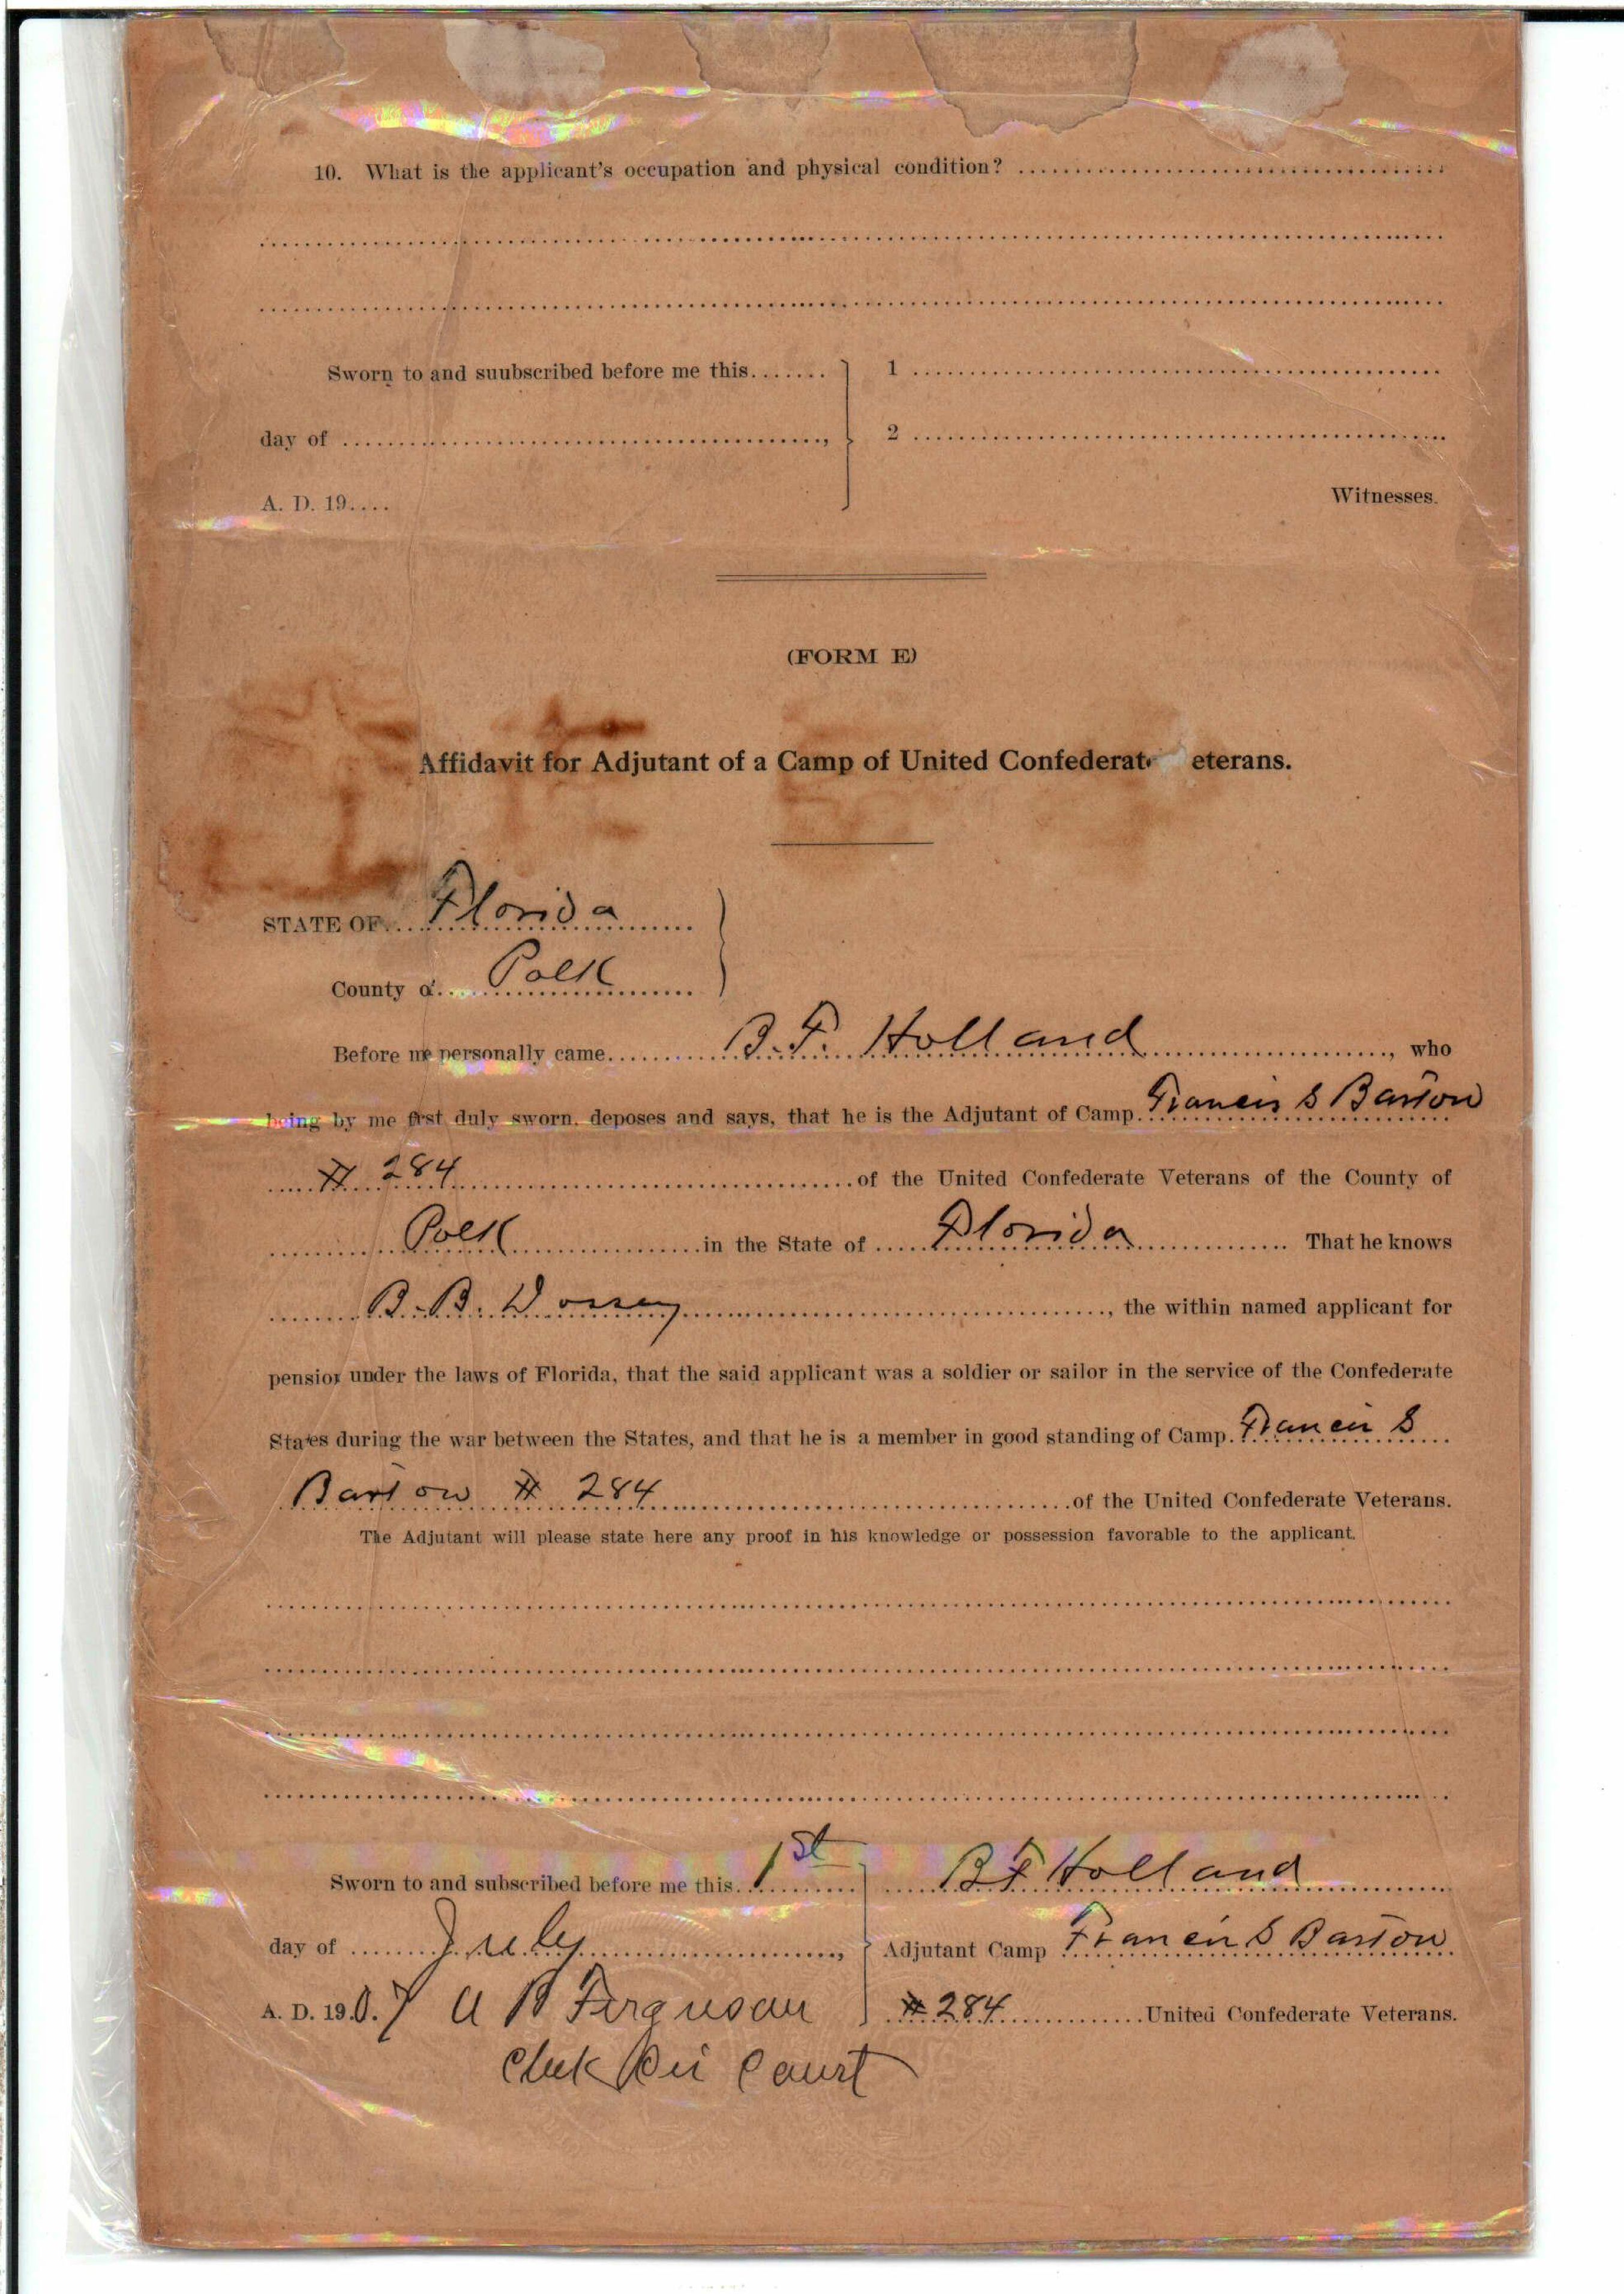 10. What is the applicant's occupation and physical condition?
Sworn to and suubscribed before me this....... 1
day of ......, 2
A. D. 19.... Witnesses.
(FORM E)
Affidavit for Adjutant of a Camp of United Confederat eterans.
STATE OF Florida
County of Polk
Before me personally came B. F. Holland, who
being by me first duly sworn, deposes and says, that he is the Adjutant of Camp Francis S Bartow
# 284 of the United Confederate Veterans of the County of
Polk in the State of Florida That he knows
B. B. Dossey, the within named applicant for
pension under the laws of Florida, that the said applicant was a soldier or sailor in the service of the Confederate
States during the war between the States, and that he is a member in good standing of Camp Francis S
Bartow # 284 of the United Confederate Veterans.
The Adjutant will please state here any proof in his knowledge or possession favorable to the applicant.
Sworn to and subscribed before me this 1st B F Holland
day of July, Adjutant Camp Francis S Bartow
A. D. 190.7 A B Ferguson # 284 United Confederate Veterans.
Clerk Cir Court